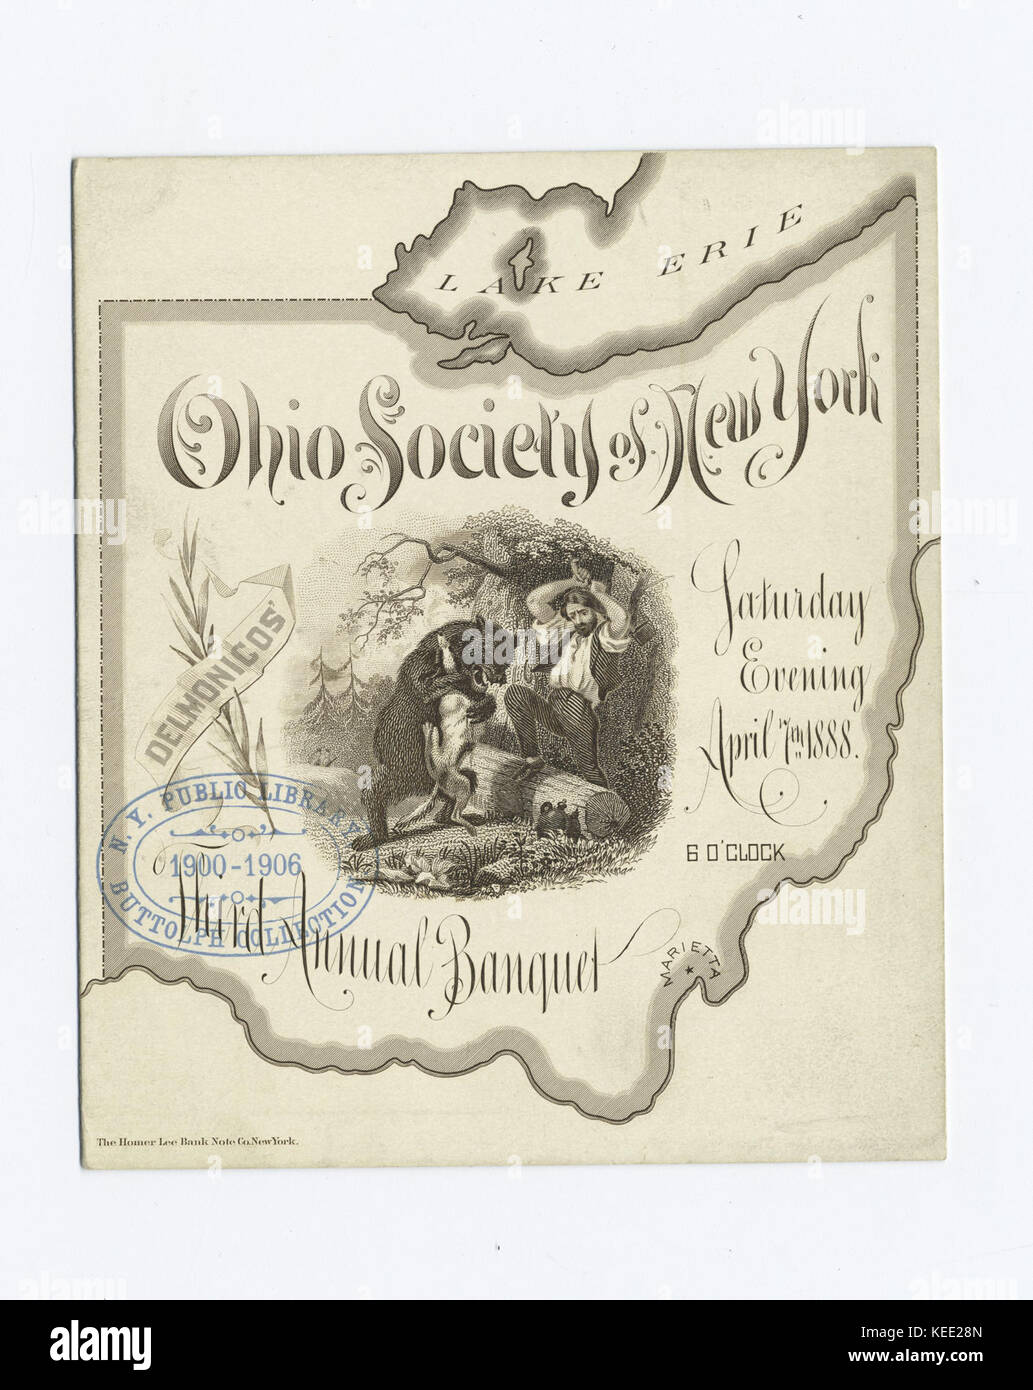 LAKE ERIE
Ohio Society of New York
DELMONICOS'
Saturday
Evening
April 7th 1888.
6 O'CLOCK
N. Y. PUBLIC LIBRARY
1900-1906
BUTTOLPH COLLECTION
Third Annual Banquet
MARIETTA
The Homer Lee Bank Note Co. New York.
alamy
Image ID: KEE28N
www.alamy.com